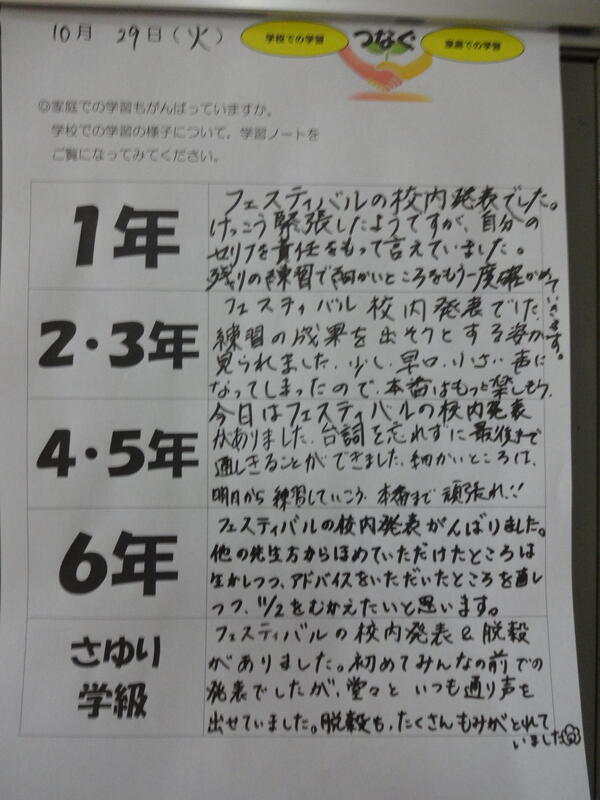 10月 29日(火)
学校での学習 つなぐ 家庭での学習
◎家庭での学習もがんばっていますか。
学校での学習の様子について、学習ノートを
ご覧になってみてください。
1年
フェスティバルの校内発表でした。
けっこう緊張したようですが、自分の
セリフを責任をもって言えていました。
残りの練習で細かいところをもう一度確かめ
ていきます。
2・3年
フェスティバル校内発表でした
練習の成果を出そうとする姿が
見られました。少し早口、小さい声に
なってしまったので、本番はもっと楽しもう。
4・5年
今日はフェスティバルの校内発表
がありました。台詞を忘れずに最後まで
通しきることができました。細かいところは、
明日から練習していこう。本番まで頑張れ!!
6年
フェスティバルの校内発表がんばりました。
他の先生方からほめていただけたところは
生かしつつ、アドバイスをいただいたところを直し
つつ、11/2をむかえたいと思います。
さゆり
学級
フェスティバルの校内発表&脱穀
がありました。初めてみんなの前での
発表でしたが、堂々といつも通り声を
出せていました。脱穀も、たくさんもみがとれて
いました